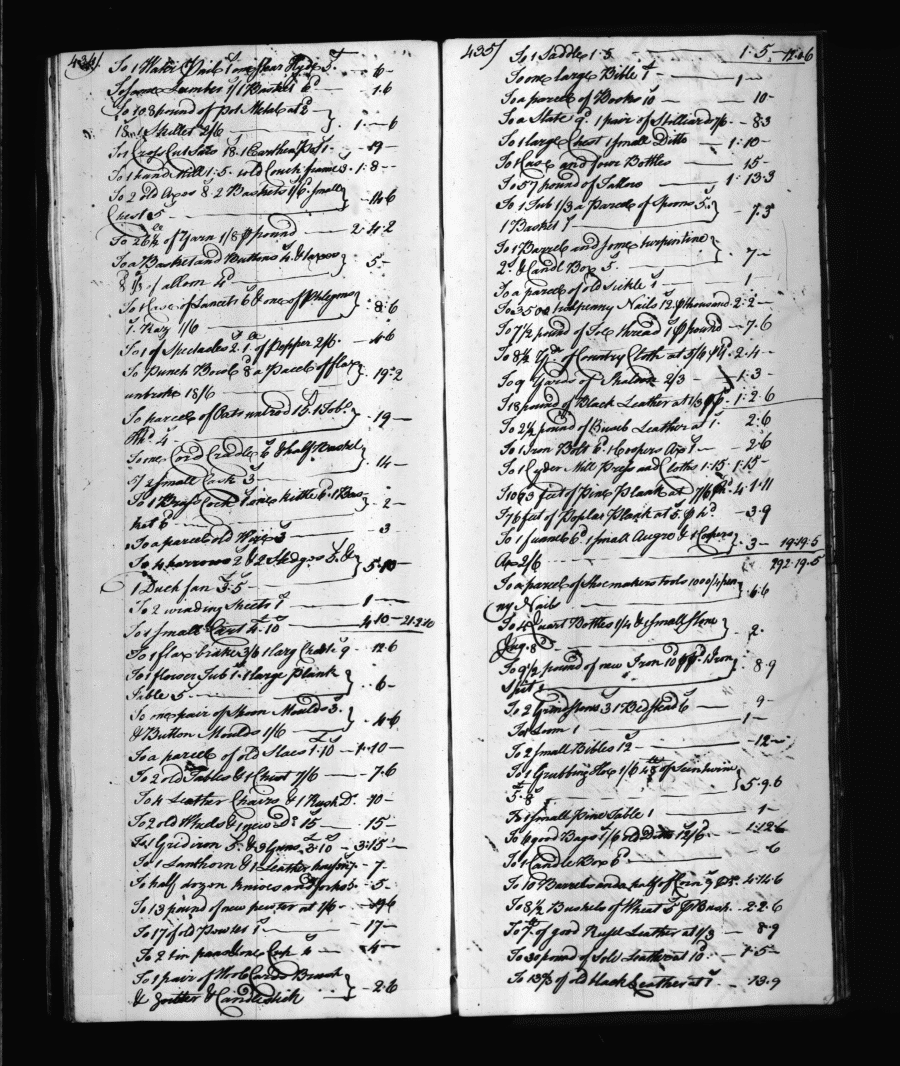 434/.
To 1 Water Pail 1/ one Bear Hyde 5/ - 6 -
To some Lumber 1/ 1 Basket 6 - 1.6
To 108 pound of Pot Metal at 2
18/ 1 Skillet 2/6 } 1 - - 6
To 1 Cross Cut Saw 18. 1 Earthen Pot 1 - 19 -
To 1 hand Mill 1.5. old Couch frame 3. 1:8 -
To 2 old Axes 8. 2 Baskets 1/6. Small
Chest 5 } - 14.6
To 26½ of Yarn 1/8 ℘ pound 2.4.2
To a Basket and Buttons 4. &
8 of allom 4d } 5 -
To 1 Case of Lancets 6 & one of Phlegms
1. Razr 1/6 } 8:6
To 1 of Spectacles 2. 1 of Pepper 2/6. 4.6
To Punch Bowl 8 a Parcel of flax
unbroke 18/6 } 19.2
To parcel of Oats 15. 1 Tob.
Hhd 4 } 19 -
To one Cradle 6 & half Bushel
5/ 2 Small Cask 3 } 14 -
To 1 Brass Cock 1 kettle 6. 1 Bas-
ket 6 } 2 -
To a parcel old 3 - 3
To 4 harrows 2 & 2 Sledges 3. &
1 Dutch fan 3.5 } 5.10 -
To 2 winding Sheets 1 - 1 -
To 1 Small Cart 4.10 - 4.10 -
To 1 flax brake 3/6 1 Lary 9 - 12.6
To 1 flower Tub 1. 1 large Plank
Table 5 } 6 -
To one pair of Spoon Moulds 3.
& Button Moulds 1/6 } 4.6
To a parcel of old 1:10 - 1.10 -
To 2 old Tables & 1 Chest 7/6 - 7.6
To 4 Leather Chairs & 1 Rush Do. 10 -
To 2 old Wheels & 1 new Do 15 - 15
To 1 Gridiron 5. & 3 Guns 3.10 - 3:15 -
To 1 Lanthorn & 1 Leather 7 - 7.
To half dozen knives and forks 5. 5.
To 13 pound of new pewter at 1/6 - 19.6
To 17 of old Pewter 1 - 17 -
To 2 tin pans one 4 - 4 -
To 1 pair of Wool Cards Brush
& & Candlestick } 2.6
435/
To 1 Saddle 1.5. - 1:5 -
To one large Bible 1 - 1 -
To a parcel of Books 10 - 10 -
To a Slate 9. 1 pair of Stilliards 7/6 - 8.3
To 1 large Chest 1 Small Ditto - 1:10 -
To 1 Case and four Bottles - 15
To 57 pound of Tallow - 1:13.3
To 1 Tub 1/3 a Parcel of Spoons 5.
1 Basket 1 } 7.3
To 1 Barrel and some turpentine
2. & Candl Box 5. } 7 -
To a parcel of old Sickle 1 - 1 -
To 3500 halfpenny Nails 12 ℘ thousand. 2:2 -
To 7½ pound of Sole thread 1 ℘ pound - 7.6
To 8½ Yds. of Country Cloth at 5/4 ℘ Yd. 2.4 -
To 9 Yards of Shaloon 2/3 - 1:3 -
To 18 pound of Black Leather at 1/3 ℘ - 1:2.6
To 2½ pound of Leather at 1. 2.6
To 1 Iron Bolt 6. 1 Coopers Ax 1 - 2.6
To 1 Cyder Mill Press and Cloths 1:15 1:15 -
To 1093 feet of Pine Plank at 7/6 ℘ hd. 4.1.11
To 76 feet of Poplar Plank at 5. ℘ hd - 3.9
To 1 funnel 6d. 1 Small Augre & 1 Coopers
Ax 2/6 } 3 - 19.19.5
292.19.5
To a parcel of Shoemakers tools 1000/4 pen
ny Nails } 6.6
To 4 Quart Bottles 1/4 & 1 Small Stone
Jug. 8d } 2.
To 9½ pound of new Iron 10 Iron
Spit } 8.9
To 2 Grindstones 3. 1 Bedstead 6 - 9 -
To 1 Loom 1 - 1 -
To 2 Small Bibles 12 - 12 -
To 1 Grubbing Hoe 1/6 48 of
5.8 } 5.9.6
To 1 Small Pine Table 1 - 1 -
To 6 good Bags 1/6 old Ditto 12/6 - 1:12.6
To 1 Candle Box 6d - 6
To 10 Barrels and a half of Corn 9 4.14.6
To 8½ Bushels of Wheat 5 ℘ Bush. 2.2.6
To 7 of good Russl Leather at 1/3 - 8.9
To 30 pound of Sole Leather at 10. 1:5 -
To 13¾ of old black Leather at 1 - 13.9